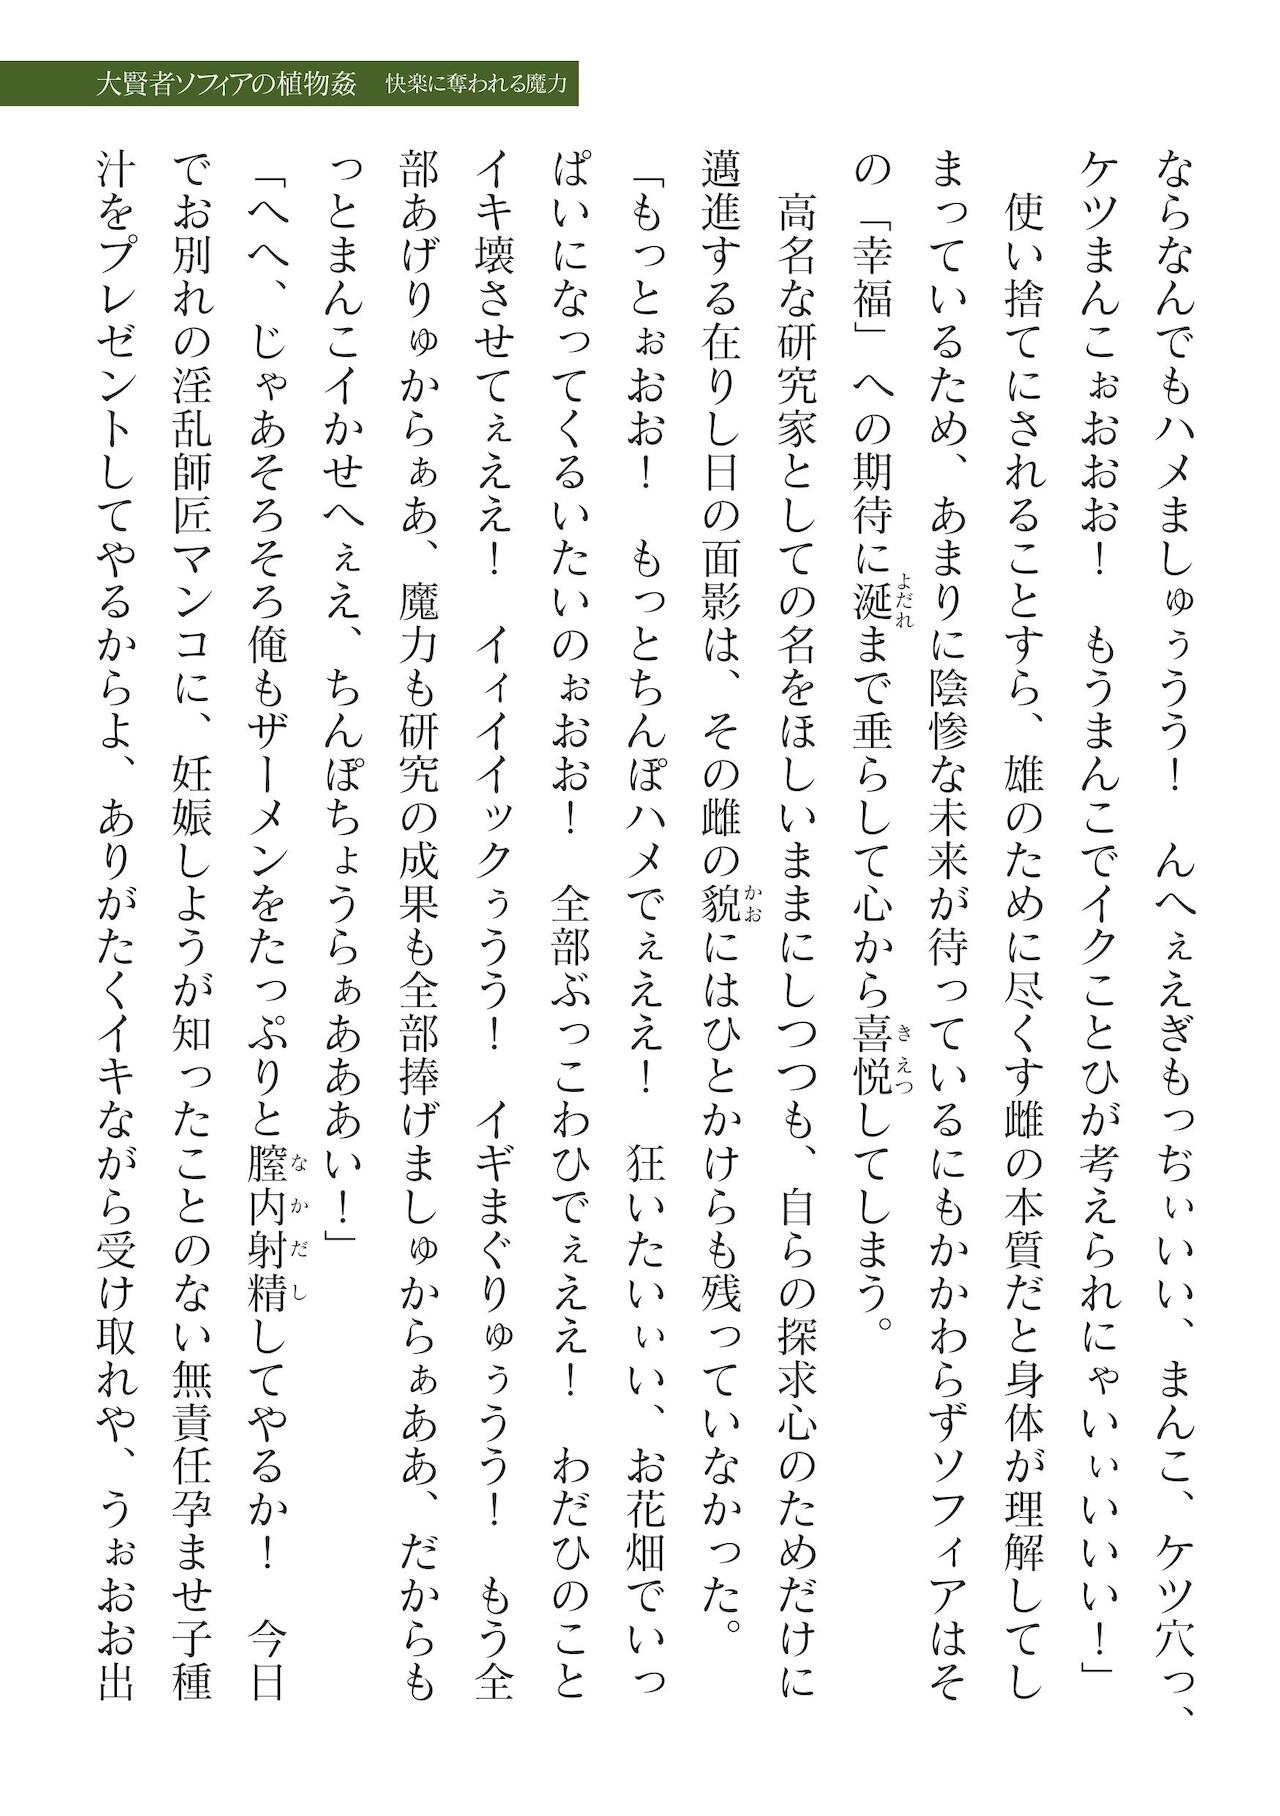 大賢者ソフィアの植物姦　快楽に奪われる魔力
ならなんでもハメましゅぅうう！　んへぇえぎもっぢぃいい、まんこ、ケツ穴っ、
ケツまんこぉおおお！　もうまんこでイクことひが考えられにゃいぃいいい！」
　使い捨てにされることすら、雄のために尽くす雌の本質だと身体が理解してし
まっているため、あまりに陰惨な未来が待っているにもかかわらずソフィアはそ
の「幸福」への期待に涎（よだれ）まで垂らして心から喜悦（きえつ）してしまう。
　高名な研究家としての名をほしいままにしつつも、自らの探求心のためだけに
邁進する在りし日の面影は、その雌の貌（かお）にはひとかけらも残っていなかった。
「もっとぉおお！　もっとちんぽハメでぇええ！　狂いたいぃい、お花畑でいっ
ぱいになってくるいたいのぉおお！　全部ぶっこわひでぇええ！　わだひのこと
イキ壊させてぇええ！　イィイイックぅうう！　イギまぐりゅぅうう！　もう全
部あげりゅからぁあ、魔力も研究の成果も全部捧げましゅからぁああ、だからも
っとまんこイかせへぇえ、ちんぽちょうらぁあああい！」
「へへ、じゃあそろそろ俺もザーメンをたっぷりと膣内射精（なかだし）してやるか！　今日
でお別れの淫乱師匠マンコに、妊娠しようが知ったことのない無責任孕ませ子種
汁をプレゼントしてやるからよ、ありがたくイキながら受け取れや、うぉおお出